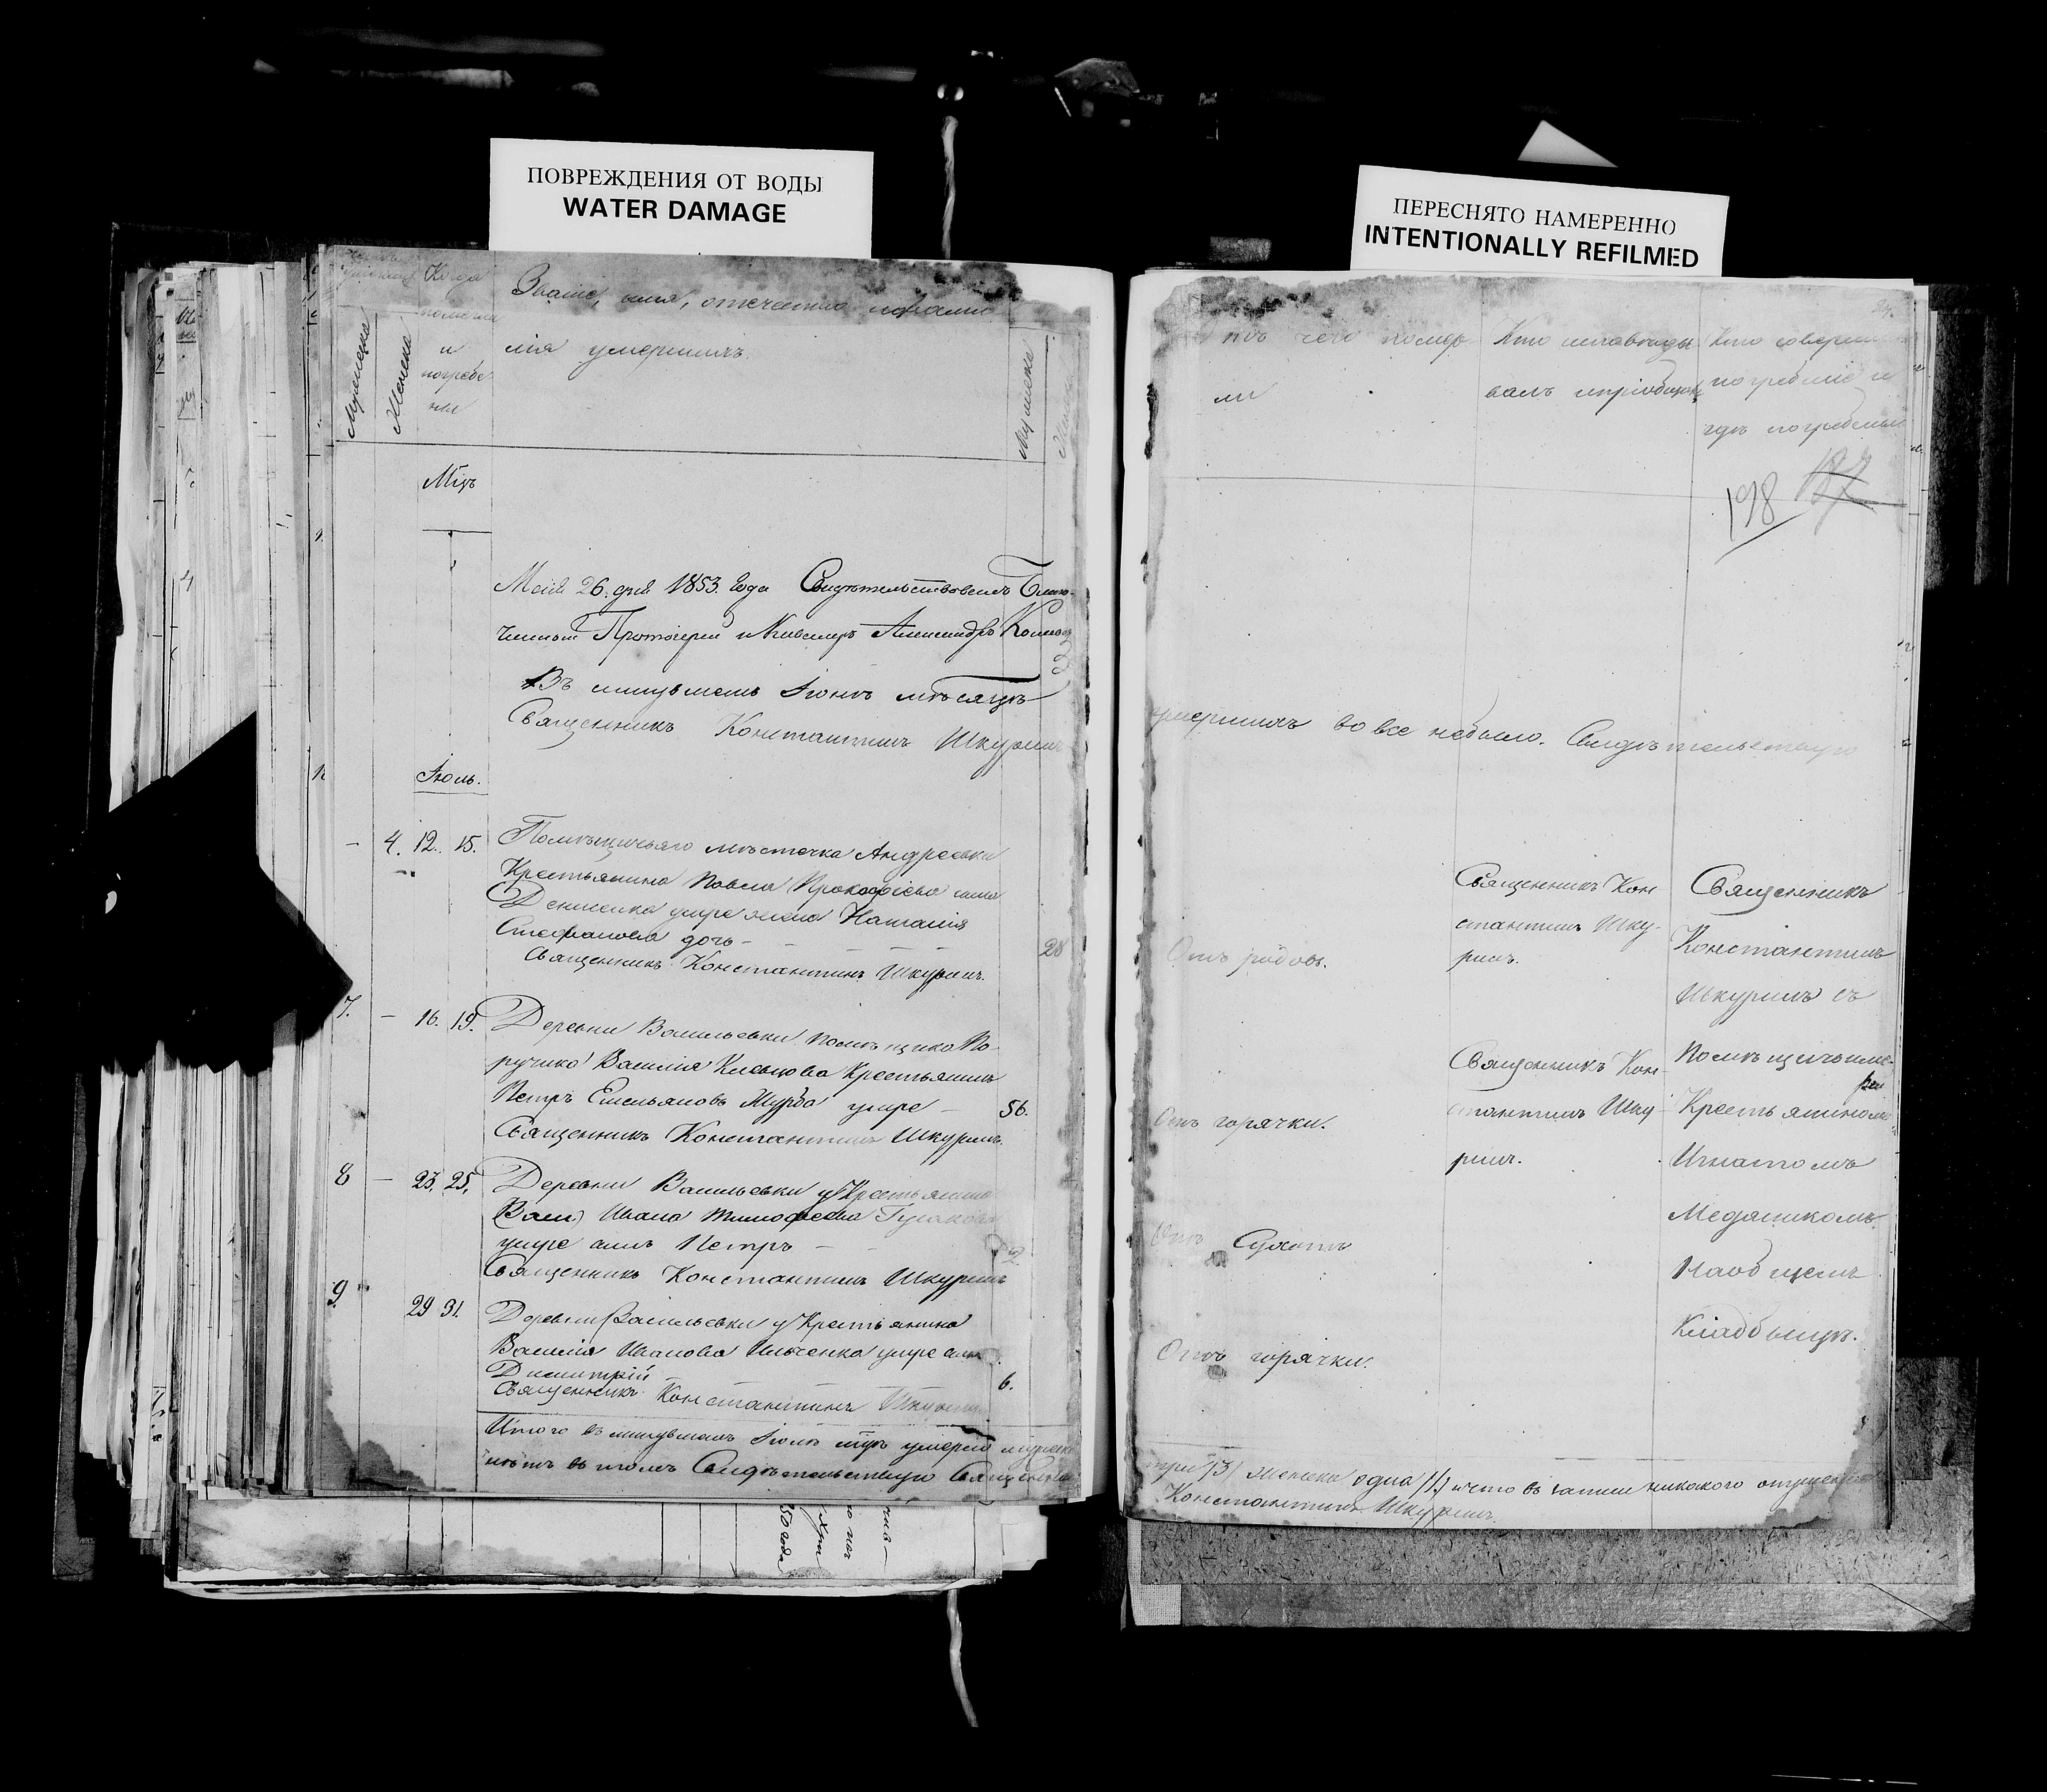 ПОВРЕЖДЕНИЯ ОТ ВОДЫ
WATER DAMAGE
ПЕРЕСНЯТО НАМЕРЕННО
INTENTIONALLY REFILMED
Когда
и
погребе
ны
Мужеска
Женска
Званіе, имя, отечество и фами
лія умершихъ.
Мужеска
Мцъ
Маія 26. дня 1853. года Свидѣтельствовалъ Благо-
чинный Протоіерей и Кавалеръ Александръ
Въ минувшемъ Іюнѣ мѣсяцѣ
Священникъ Константинъ Шкуринъ
Іюль.
4. 12. 15. Помѣщичьяго мѣстечка Андреевки
Крестьянина Павла Прокофіева сына
Денисенка умре жена Наталія
Стефанова дочь
28
Священникъ Константинъ Шкуринъ.
7. 16. 19. Деревни Васильевки помѣщика По-
ручика Василія Крестьянинъ
Петръ Емельяновъ Журба умре 56.
Священникъ Константинъ Шкуринъ.
8 23. 25. Деревни Васильевки у Крестьянина
Ивана Тимофеева
умре сынъ Петръ 2
Священникъ Константинъ Шкуринъ
9. 29 31. Деревни Васильевки у Крестьянина
Василія Иванова Ильченка умре сынъ
Димитрій 6.
Священникъ Константинъ Шкуринъ
Итого въ минувшемъ Іюлѣ мцѣ умерло мужеска
Свидѣтельствую Священникъ
24.
Отъ чего помер
ли
Кто исповѣды
валъ и пріобщалъ
Кто совершалъ
погребеніе и
гдѣ погребены
198 187
умершихъ вовсе небыло. Свидѣтельствую
Отъ родовъ.
Священникъ Кон
стантинъ Шку-
ринъ.
Священникъ
Константинъ
Шкуринъ съ
Отъ горячки.
Священникъ Кон-
стантинъ Шку
ринъ.
Крестьяниномъ
Игнатомъ
Медяникомъ.
На общемъ
Кладбищѣ.
Отъ Сухотъ
Отъ горячки.
три /3/ женска одна /1/ и что въ записи никакого опущенія
Константинъ Шкуринъ.